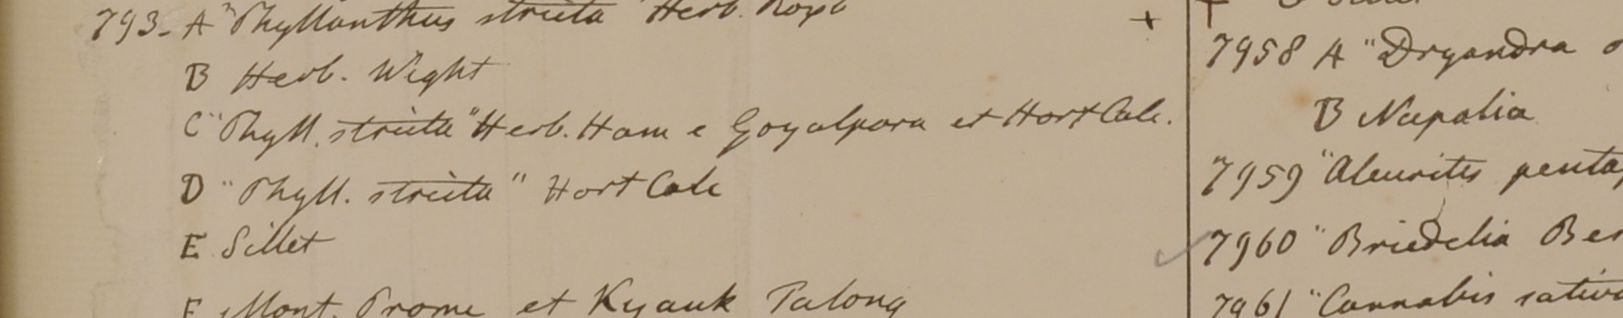 793- A "Phyllanthus stricta" Herb. Roxb
B Herb. Wight
C "Phyll. stricta" Herb. Ham e Goyalpara et Hort Calc.
D "Phyll. stricta" Hort Calc
E Sillet
F Mont. Prome et Kyauk Talong
7958 A "Dryandra o
B Napalia
7959 "Aleurites penta
7960 "Briedelia Ber
7961 "Cannabis sativa